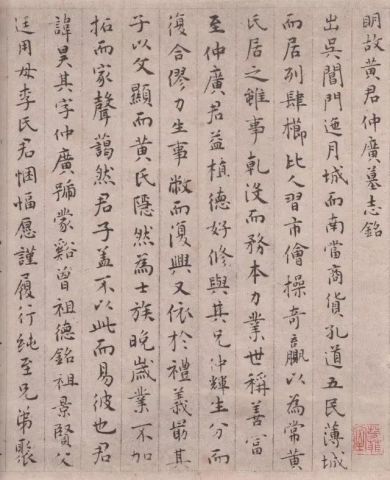 明故黄君仲廣墓志銘
出吳閶門迤月城而南當商貨孔道五民薄城
而居列肆櫛比人習市儈操奇贏以為常黄
氏居之雖事乹没而務本力業世稱善富
至仲廣君益植德好修與其兄沖輝生分而
復合僇力生事敝而復興又依於禮義最其
子以父顯而黄氏隱然為士族晚歲業不加
拓而家聲藹然君子蓋不以此而易彼也君
諱昊其字仲廣號蒙谿曾祖德銘祖景賢父
廷用母李氏君悃愊愿謹履行純至兄弟聚